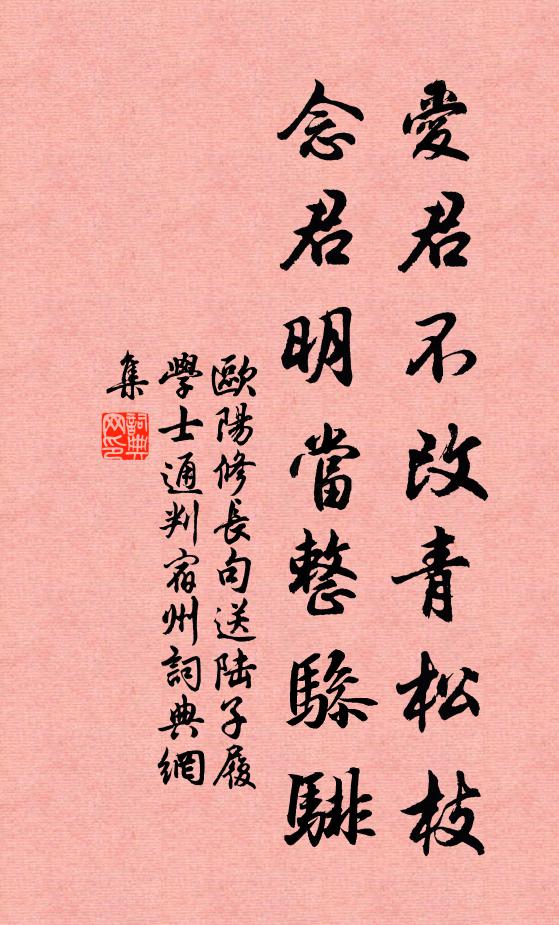 愛君不改青松枝
念君明當整驂騑
歐陽修長句送陸子履
學士通判宿州詞典網
集
詞典
网印